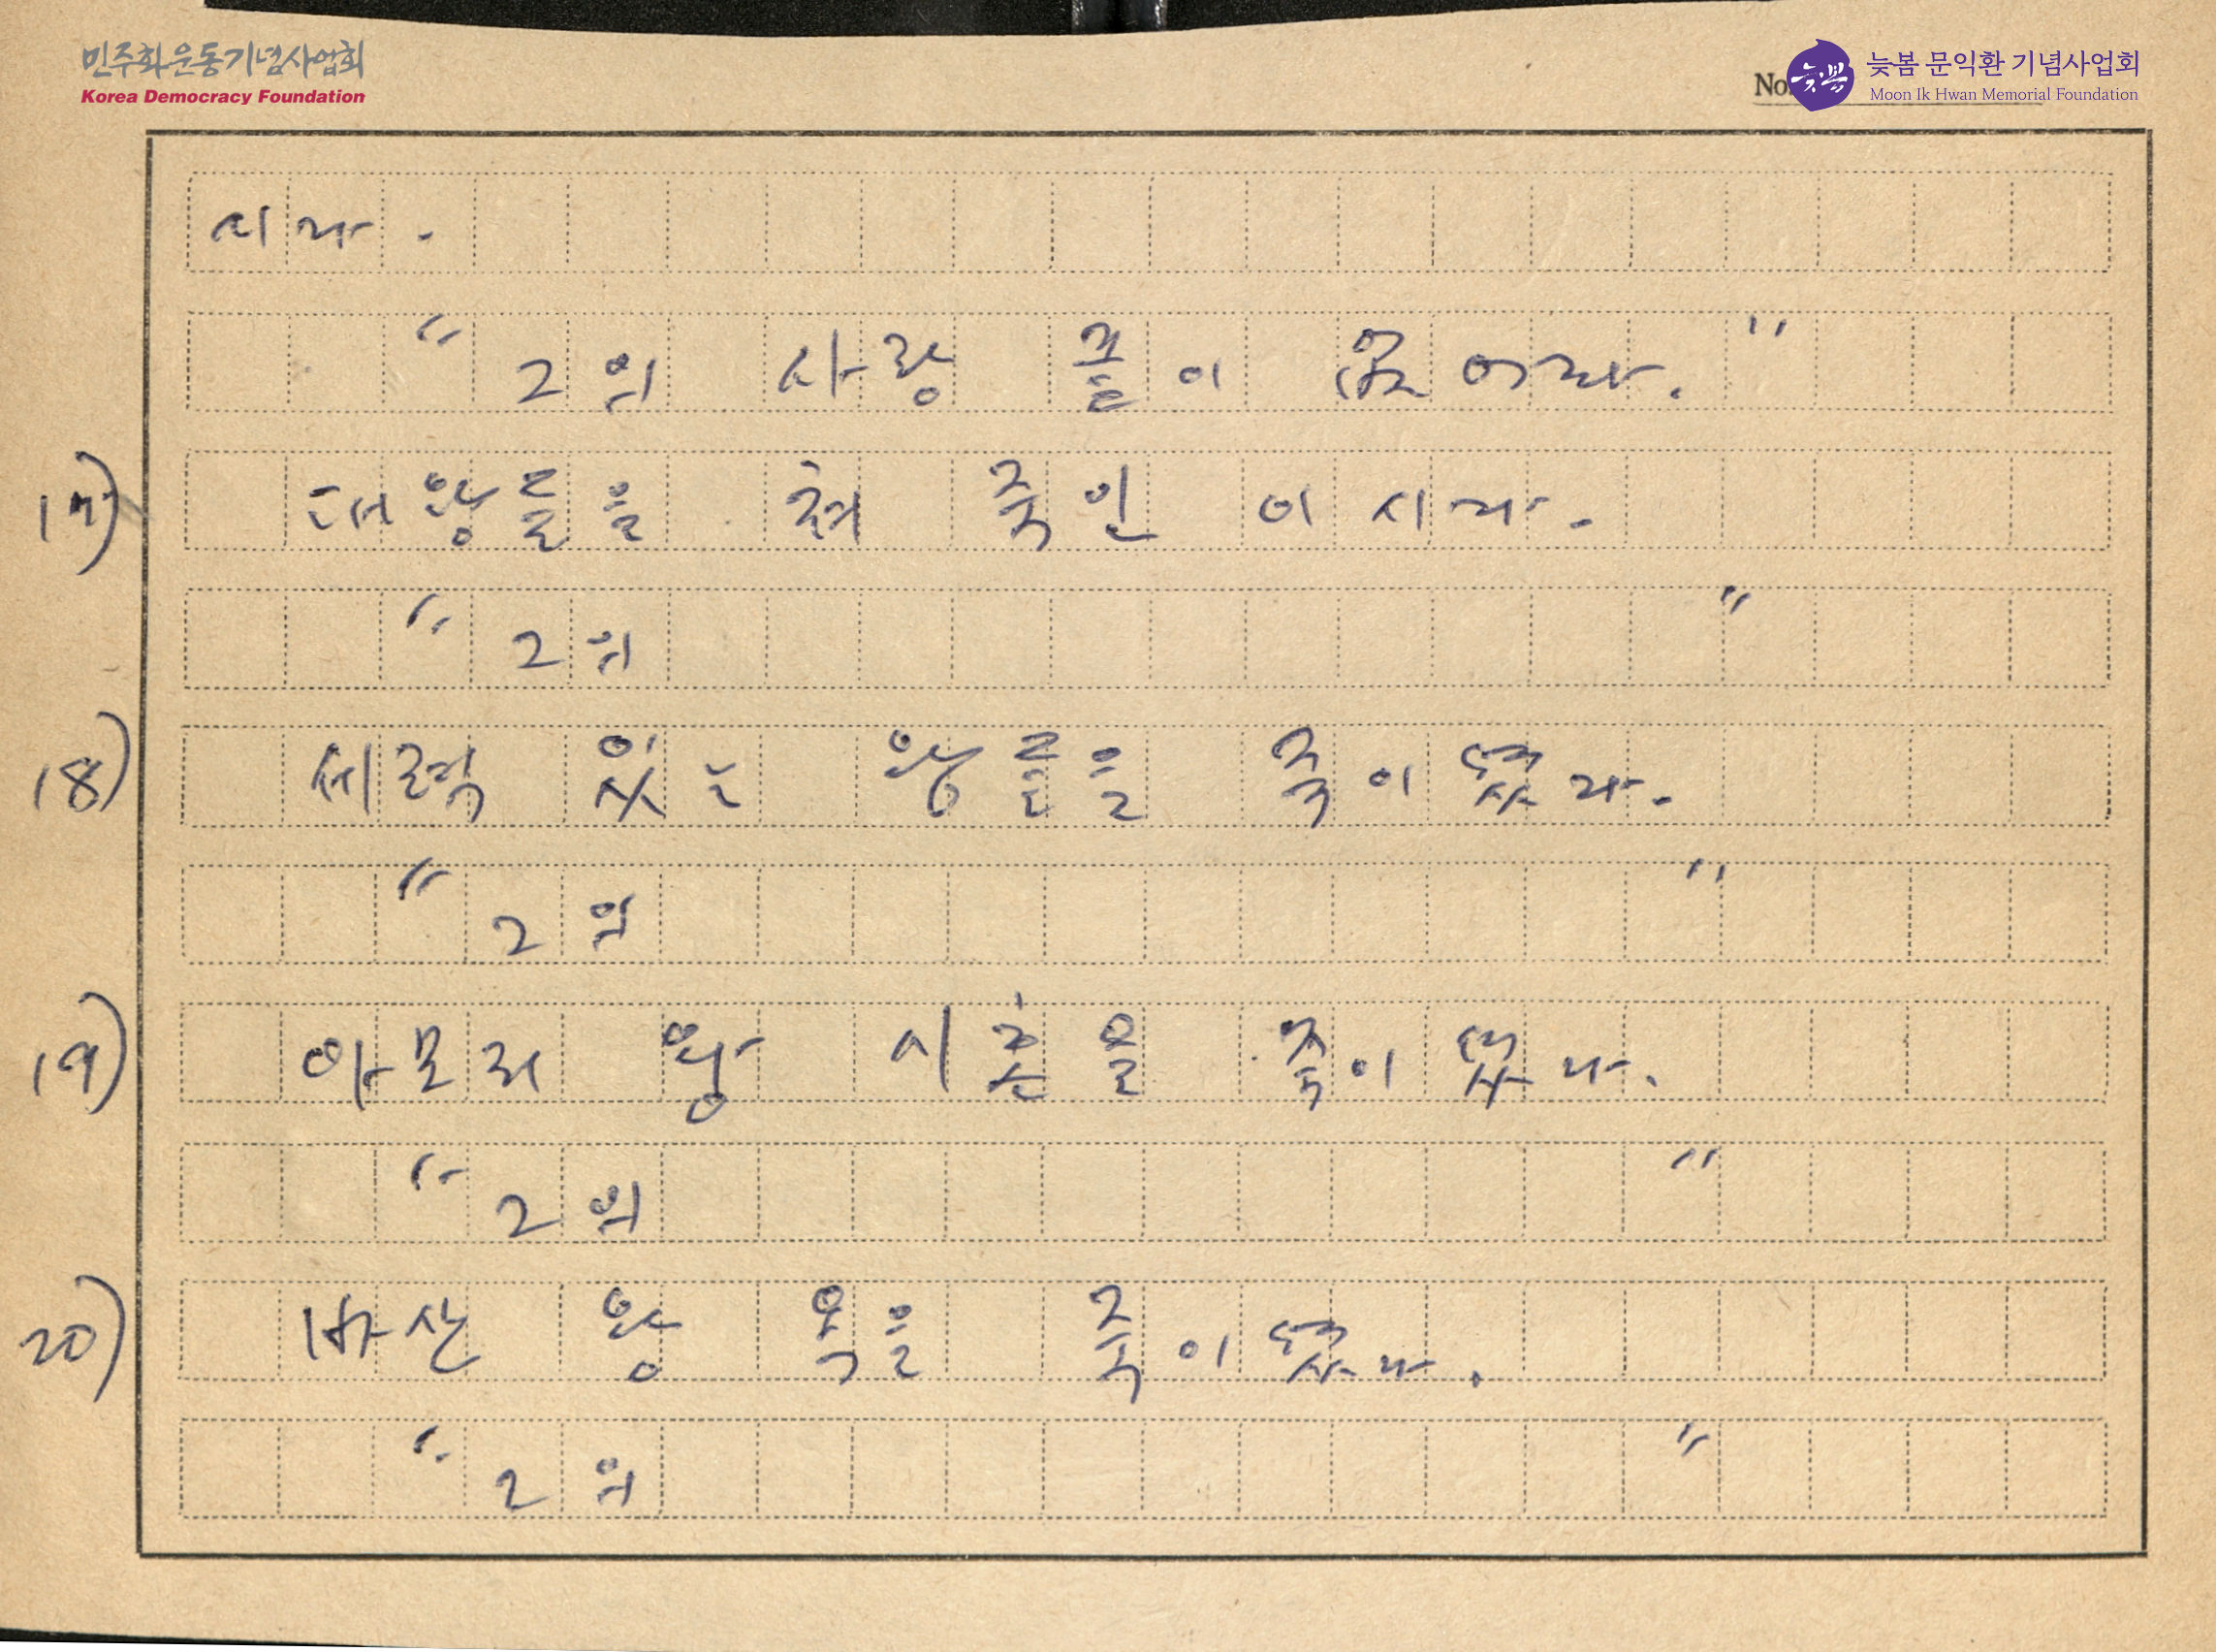 민주화운동기념사업회
Korea Democracy Foundation
No.
늦봄
늦봄 문익환 기념사업회
Moon Ik Hwan Memorial Foundation
시라.
" 그의 사랑 끝이 없어라. "
17) 대왕들을 쳐 죽인 이시라.
" 그의 "
18) 세력 있는 왕들을 죽이셨다.
" 그의 "
19) 아모리 왕 시혼을 죽이셨다.
" 그의 "
20) 바산 왕 옥을 죽이셨다.
" 그의 "